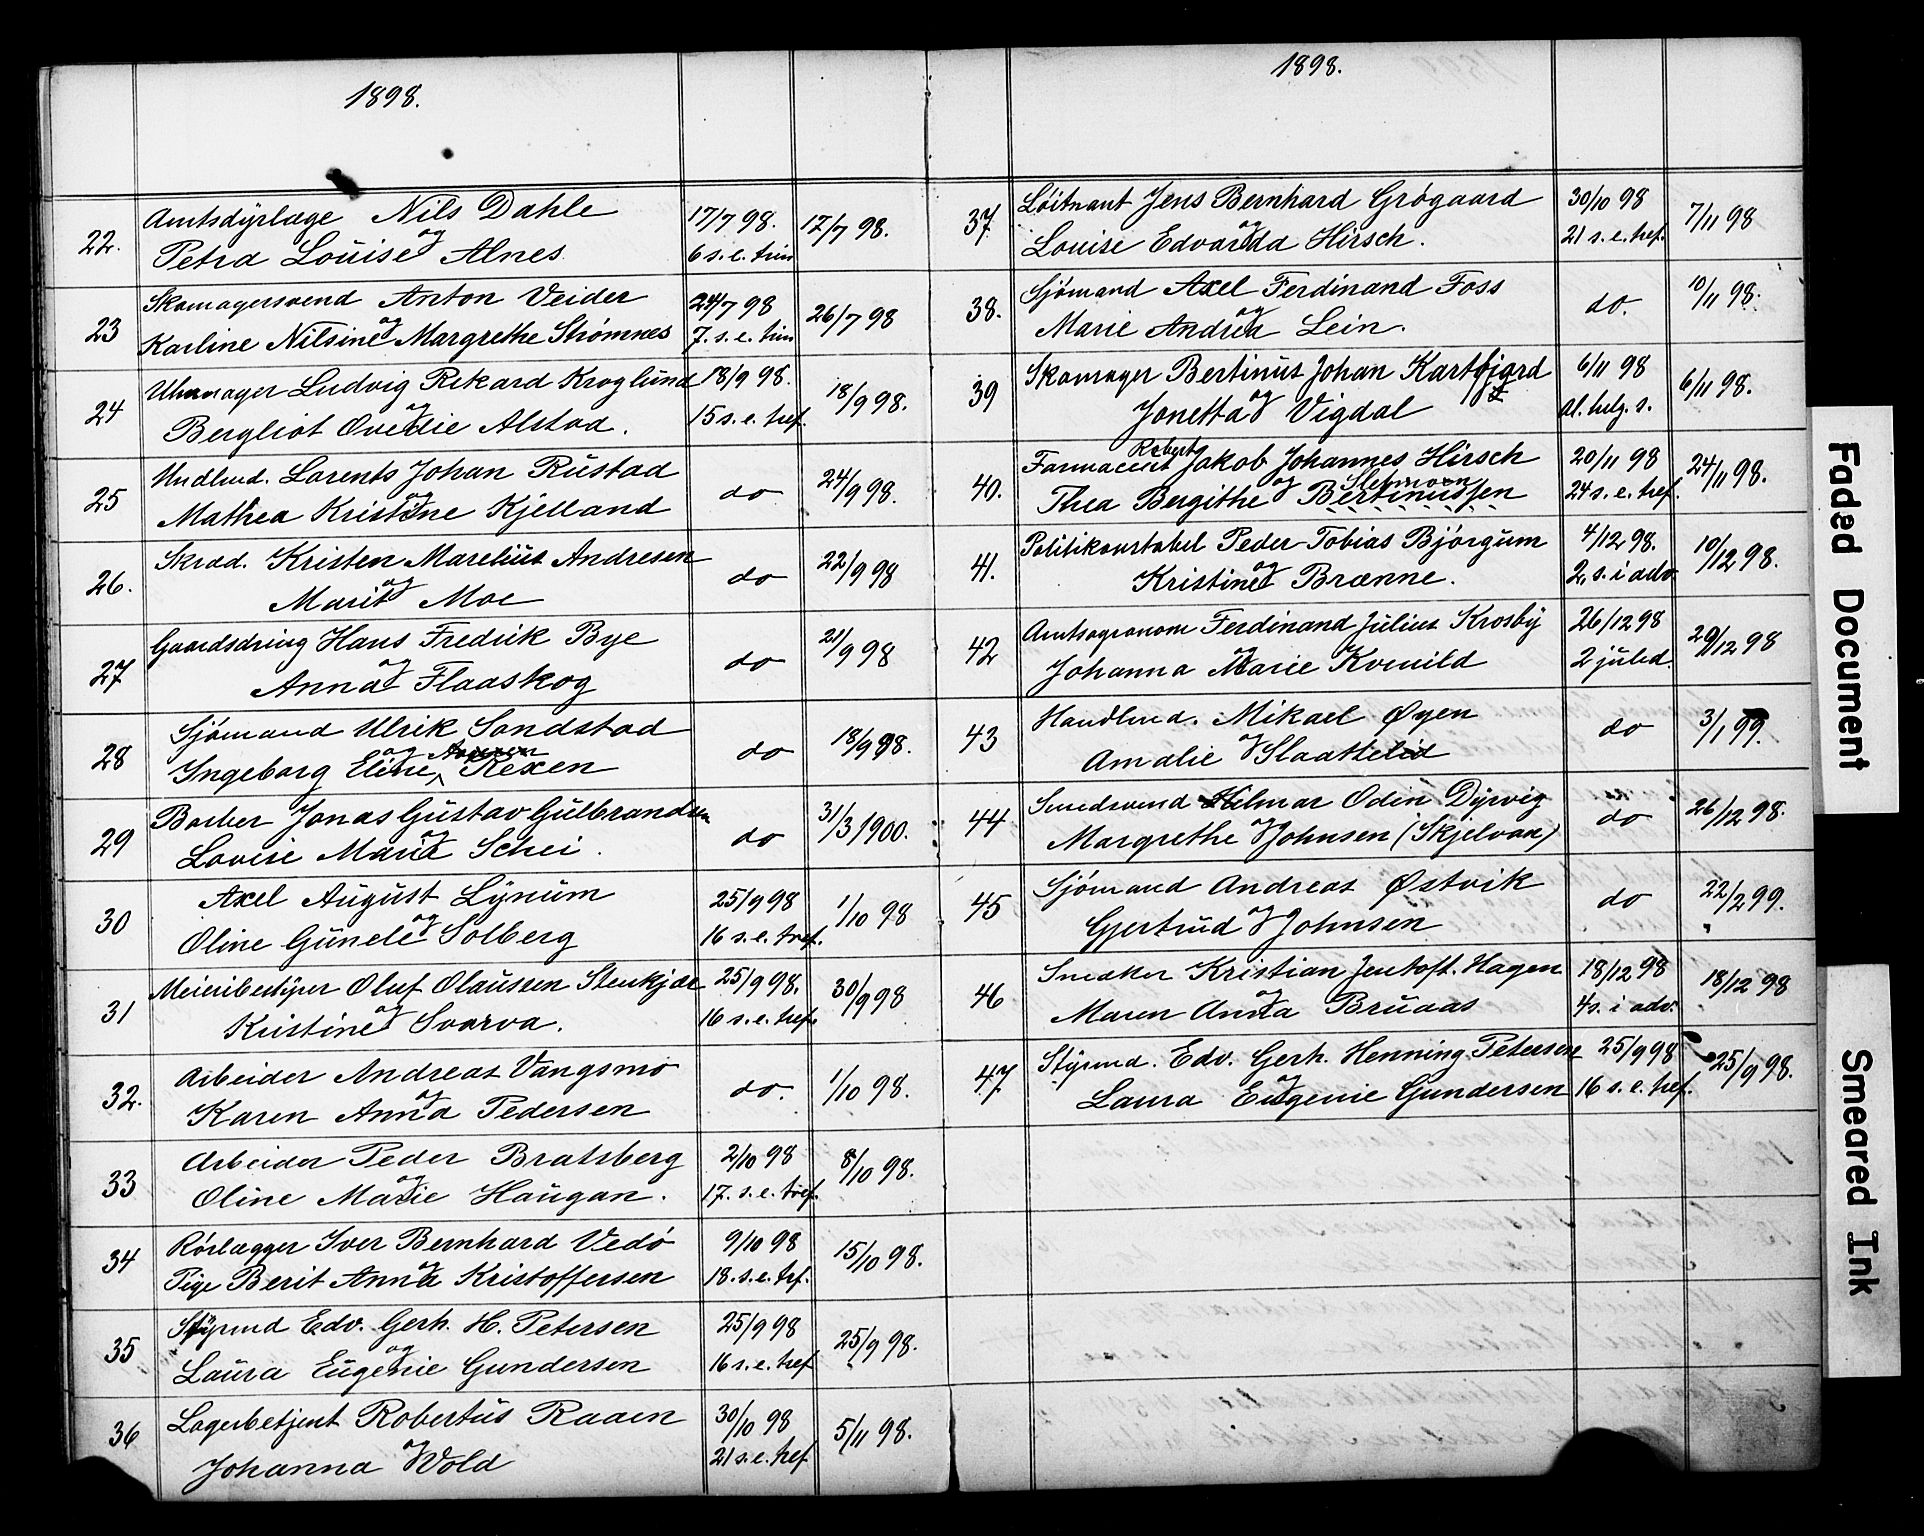 1898.
22. Amtsdyrlæge Nils Dahle 17/7 98. 17/7 98.
og
Petra Louise Alnes 6 s. e. trin
23 Skomagersvend Anton Veider 24/7 98 26/7 98
og
Karline Nilsine Margrethe Strømnes 7. s. e. trin
24 Uhrmager Ludvig Rikard Kroglund 18/9 98. 18/9 98.
og
Bergliot Ovedie Alstad. 15 s. e. tref.
25 Undlnd. Lorents Johan Rustad do 24/9 98.
og
Mathea Kristine Kjelland
26. Skrad. Kristen Marelius Andresen do 22/9 98
og
Marit Moe
27 Gaardsdring Hans Fredrik Bye do 21/9 98
og
Anna Flaaskog
28 Sjømand Ulrik Sandstad do 18/9 98.
og
Ingeborg Eline Rexen
29 Barber Jonas Gustav Gulbrandsen do 31/3 1900.
og
Lovise Maria Schei.
30 Axel August Lynum 25/9 98 1/10 98
og
Oline Gunele Solberg 16 s. e. tref.
31 Meieribestyrer Oluf Olaussen Stenkjær 25/9 98. 30/9 98
og
Kristine Svarva. 16 s. e. tref.
32. Arbeider Andreas Vangsmo do. 1/10 98.
og
Karen Anna Pedersen
33 Arbeider Peder Bratsberg 2/10 98 8/10 98.
og
Oline Marie Haugan. 17. s. e. tref.
34 Rørlægger Iver Bernhard Vedø 9/10 98 15/10 98.
og
Pige Berit Anna Kristoffersen 18. s. e. trf.
35 Styrmd Edv. Gerh. H. Petersen 25/9 98 25/9 98.
og
Laura Eugenie Gundersen 16 s. e. tref
36 Lagerbetjent Robertus Raaen 30/10 98 5/11 98.
og
Johanna Wold 21 s. e. tref
1898.
37 Løitnant Jens Bernhard Grøgaard 30/10 98 7/11 98
og
Louise Edvarda Hirsch. 21 s. e. tref.
38. Sjømand Axel Ferdinand Foss do. 10/11 98.
og
Marie Andrea Lein.
39 Skomager Bertinus Johan Kartfjord 6/11 98 6/11 98.
og
Jonetta Vigdal al. helg. s.
Robert
40. Farmaceut Jakob Johannes Hirsch 20/11 98 24/11 98.
og
Thea Bergithe Bertinussen 24 s. e. tref.
41. Politikonstabel Peder Tobias Bjørgum 4/12 98. 10/12 98.
og
Kristine Brænne. 2. s. i adv.
42 Amtsagronom Ferdinand Julius Krosby 26/12 98 29/12 98
og
Johanna Marie Kvenild 2 juled.
43 Handlmd. Mikael Øyen do 3/1 99.
og
Amalie Slaattelid
44 Smedsvend Hilmar Odin Dyrvig do 26/12 98.
og
Margrethe Johnsen (Skjelvan)
45 Sjømand Andreas Østvik do 22/2 99.
og
Gjertrud Johnsen
46 Snedker Kristian Jentoft. Hagen 18/12 98 18/12 98
og
Maren Anna Bruaas 4 s. i adv.
47 Styrmd. Edv. Gerh. Henning Petersen 25/9 98 25/9 98.
og
Laura Eugenie Gundersen 16 s. e. tref.
Faded Document
Smeared Ink